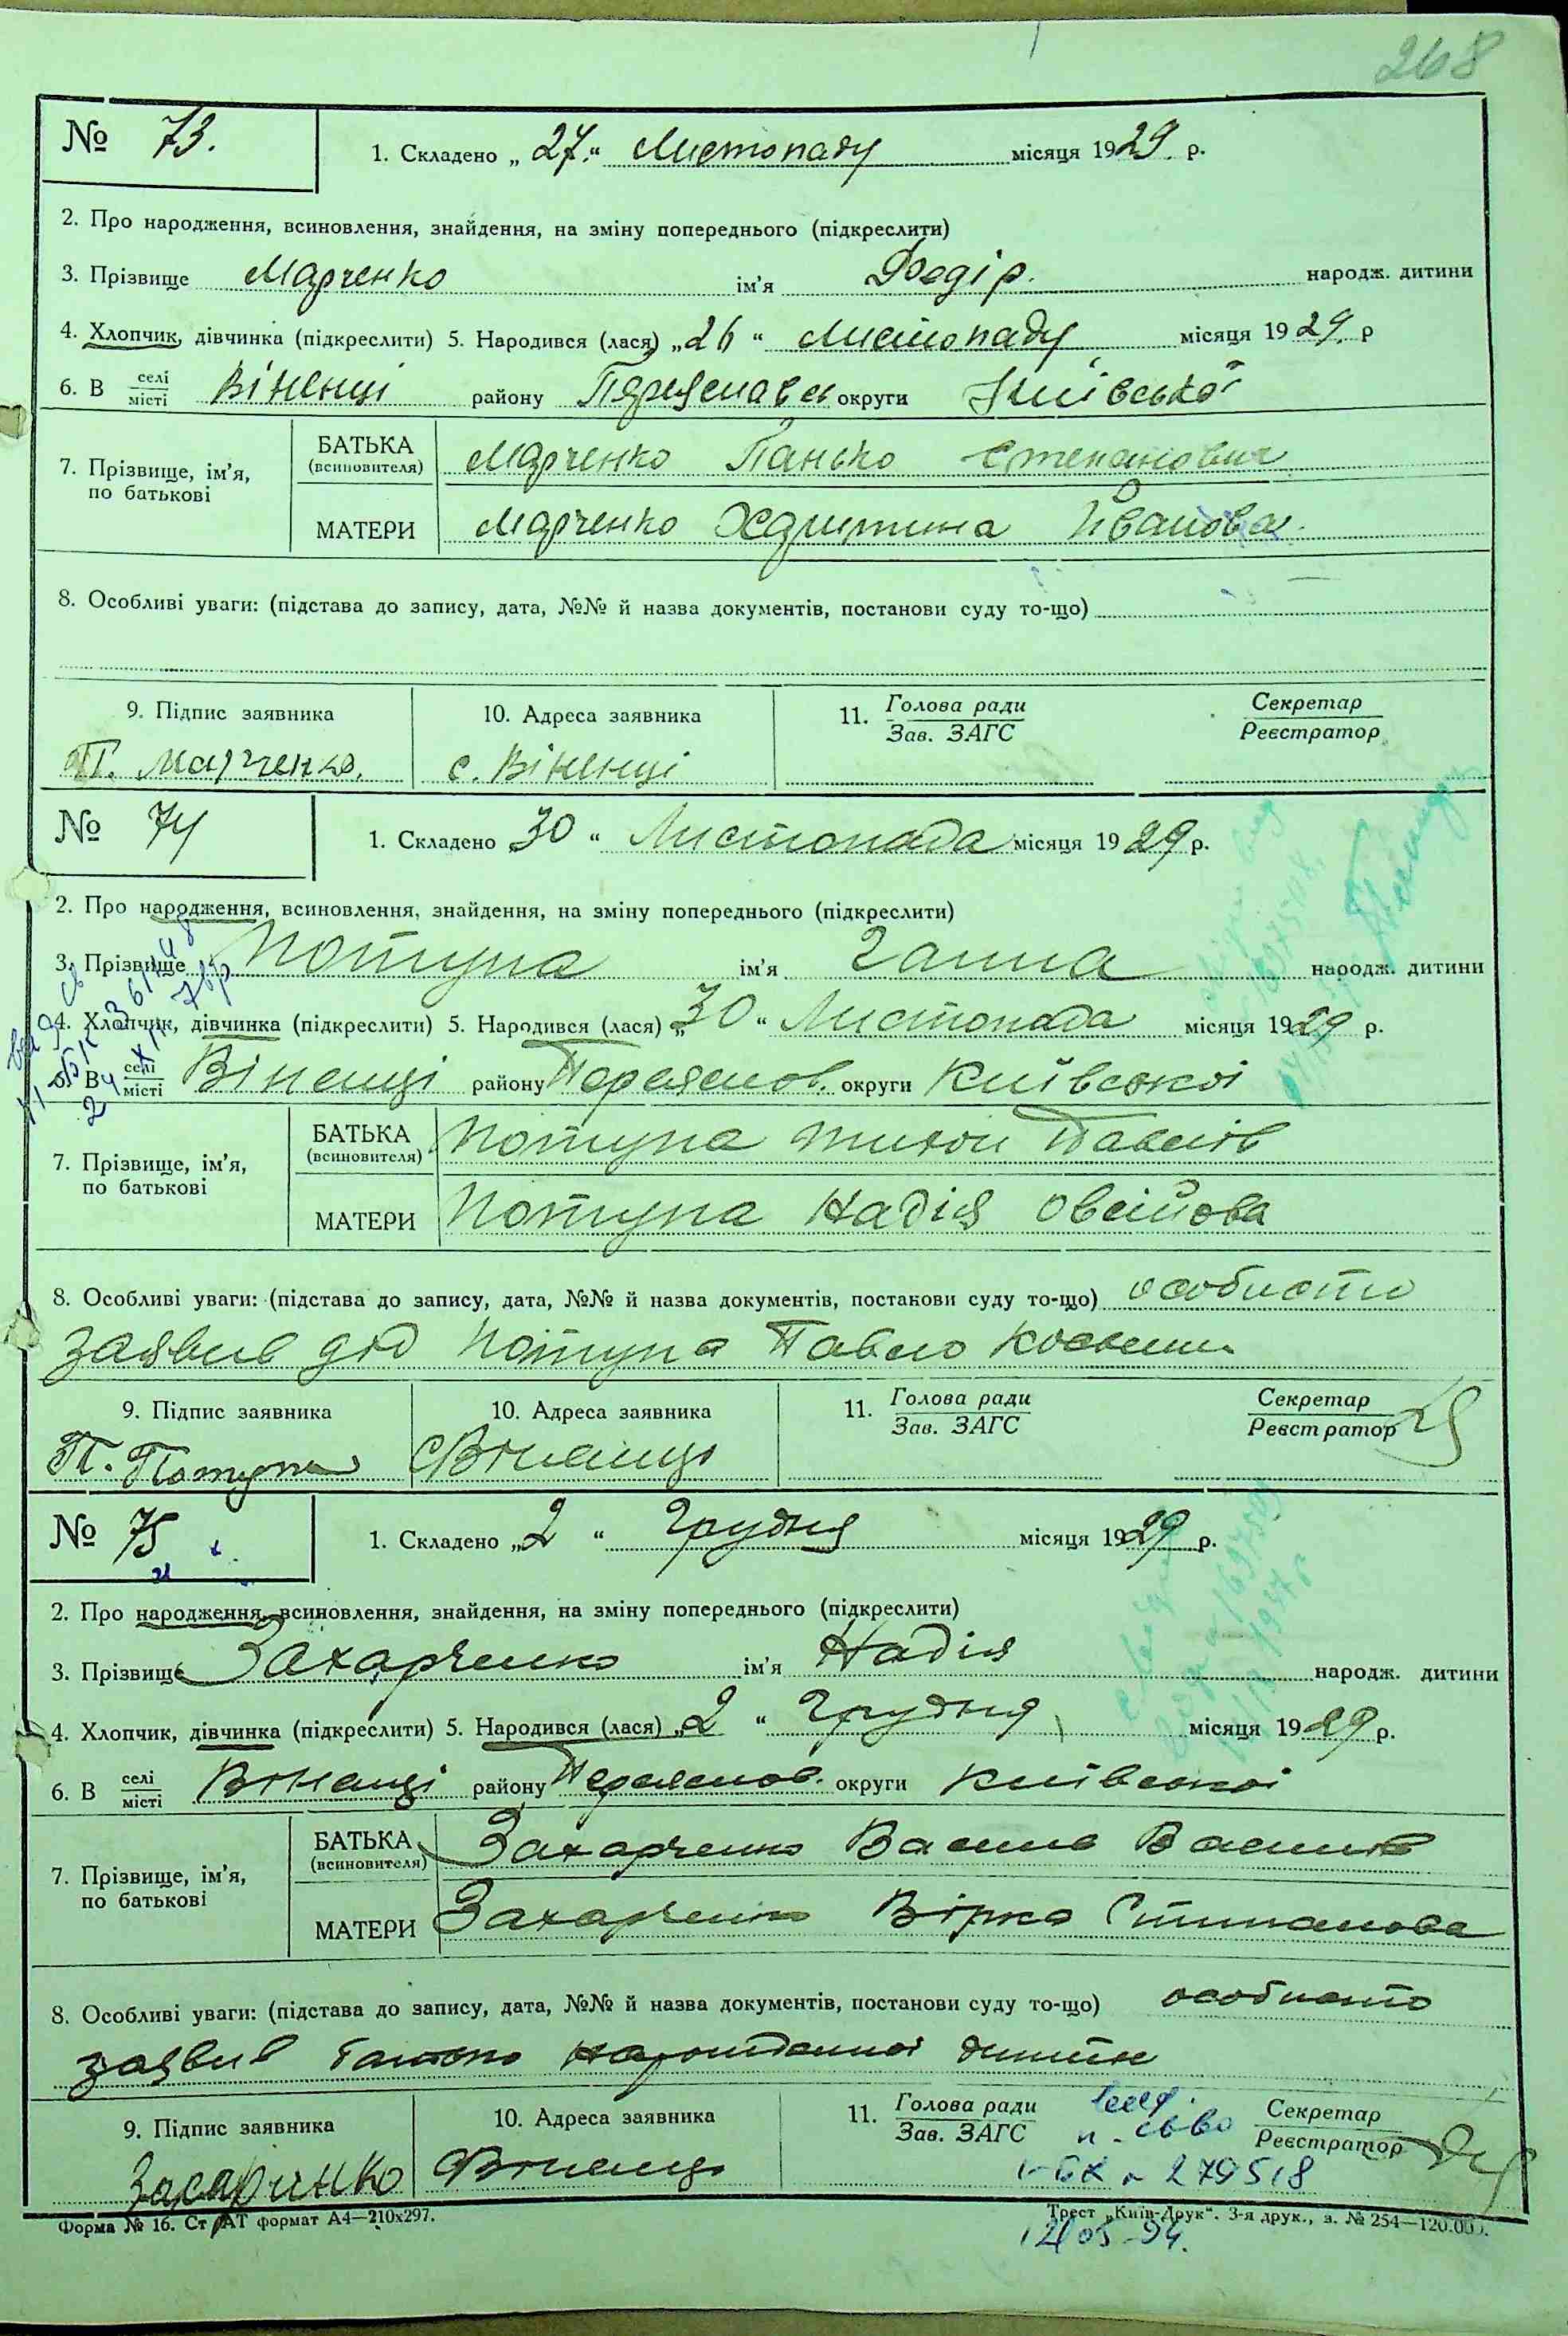 268
№ 73.
1. Складено „27.“ Листопаду місяця 1929. р.
2. Про народження, всиновлення, знайдення, на зміну попереднього (підкреслити)
3. Прізвище Марченко ім'я Федір. народж. дитини
4. Хлопчик, дівчинка (підкреслити) 5. Народився (лася) „26“ Листопаду місяця 1929. р
6. В селі місті Віненці району округи Київської
7. Прізвище, ім'я, по батькові
БАТЬКА (всиновителя) Марченко Панько Степанович
МАТЕРИ Марченко Іванова
8. Особливі уваги: (підстава до запису, дата, №№ й назва документів, постанови суду то-що)
9. Підпис заявника 10. Адреса заявника 11. Голова ради Зав. ЗАГС Секретар Реєстратор
П. Марченко. с. Віненці
№ 74
1. Складено 30 “ Листопада місяця 1929 р.
2. Про народження, всиновлення, знайдення, на зміну попереднього (підкреслити)
3. Прізвище Потупа ім'я Ганна народж. дитини
4. Хлопчик, дівчинка (підкреслити) 5. Народився (лася) „30“ Листопада місяця 1929 р.
6. В селі місті Віненці району Переяслов. округи Київської
7. Прізвище, ім'я, по батькові
БАТЬКА (всиновителя) Потупа Тихон Павлів
МАТЕРИ Потупа Надія
8. Особливі уваги: (підстава до запису, дата, №№ й назва документів, постакови суду то-що) особисто
заявив дід Потупа Павло
9. Підпис заявника 10. Адреса заявника 11. Голова ради Зав. ЗАГС Секретар Реєстратор
П. Потупа с Віненці
№ 75
1. Складено „2“ Грудня місяця 1929 р.
2. Про народження, всиновлення, знайдення, на зміну попереднього (підкреслити)
3. Прізвище Захарченко ім'я Надія народж. дитини
4. Хлопчик, дівчинка (підкреслити) 5. Народився (лася) „2“ Грудня місяця 1929 р.
6. В селі місті Віненці району Переяслов. округи Київської
7. Прізвище, ім'я, по батькові
БАТЬКА (всиновителя) Захарченко Василь Василів
МАТЕРИ Захарченко Вірка Степанова
8. Особливі уваги: (підстава до запису, дата, №№ й назва документів, постанови суду то-що) особисто
заявив батько
9. Підпис заявника 10. Адреса заявника 11. Голова ради Зав. ЗАГС Секретар Реєстратор
с Віненці
279518
Форма № 16. Ст АТ формат А4—210х297.
Трест „Київ-Друк“. 3-я друк., з. № 254—120.000.